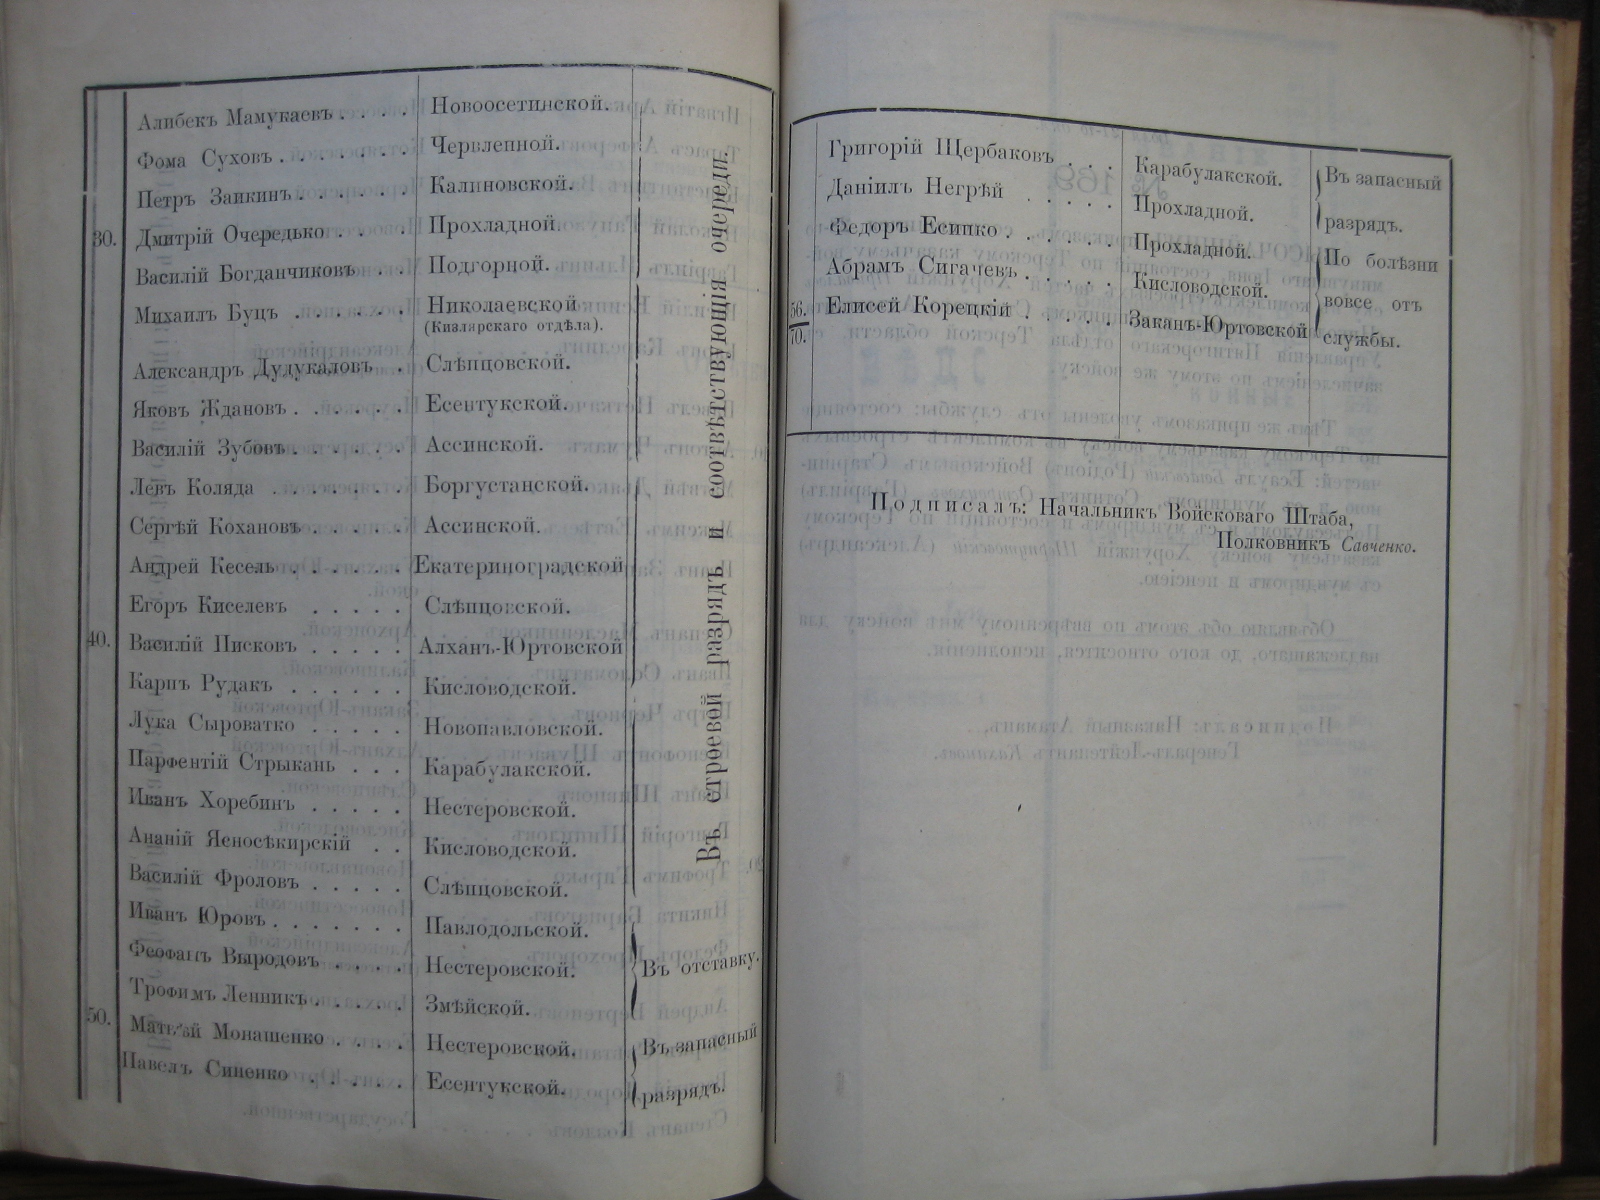 Алибекъ Мамукаевъ . . . . Новоосетинской.
Фома Суховъ . . . . . . . Червленной.
Петръ Заикинъ . . . . . . Калиновской.
30. Дмитрій Очередько . . . . Прохладной.
Василій Богданчиковъ . . Подгорной.
Михаилъ Буцъ . . . . . . Николаевской
(Кизлярскаго отдѣла).
Александръ Дудукаловъ . Слѣпцовской.
Яковъ Ждановъ . . . . . . Есентукской.
Василій Зубовъ . . . . . . Ассинской.
Левъ Коляда . . . . . . . Боргустанской.
Сергѣй Кохановъ . . . . . Ассинской.
Андрей Кесель . . . . . . Екатериноградской
Егоръ Киселевъ . . . . . Слѣпцовской.
40. Василій Писковъ . . . . . Алханъ-Юртовской
Карпъ Рудакъ . . . . . . Кисловодской.
Лука Сыроватко . . . . . Новопавловской.
Парфентій Стрыкань . . . Карабулакской.
Иванъ Хоребинъ . . . . . Нестеровской.
Ананій Ясносѣкирскій . . Кисловодской.
Василій Фроловъ . . . . . Слѣпцовской.
Иванъ Юровъ . . . . . . . Павлодольской.
Въ строевой разрядъ и соотвѣтствующія очереди.
Феофанъ Выродовъ . . . . Нестеровской. Въ отставку.
Трофимъ Ленникъ . . . . . Змѣйской.
50. Матвѣй Монашенко . . . . Нестеровской. Въ запасный
Павелъ Синенко . . . . . Есентукской. разрядъ.
Григорій Щербаковъ . . . Карабулакской. Въ запасный
Даніилъ Негрѣй . . . . . Прохладной. разрядъ.
Федоръ Есипко . . . . . Прохладной. По болѣзни
Абрамъ Сигачевъ . . . . . Кисловодской. вовсе отъ
56. Елисей Корецкій . . . . . Заканъ-Юртовской службы.
70.
Подписалъ: Начальникъ Войсковаго Штаба,
Полковникъ Савченко.